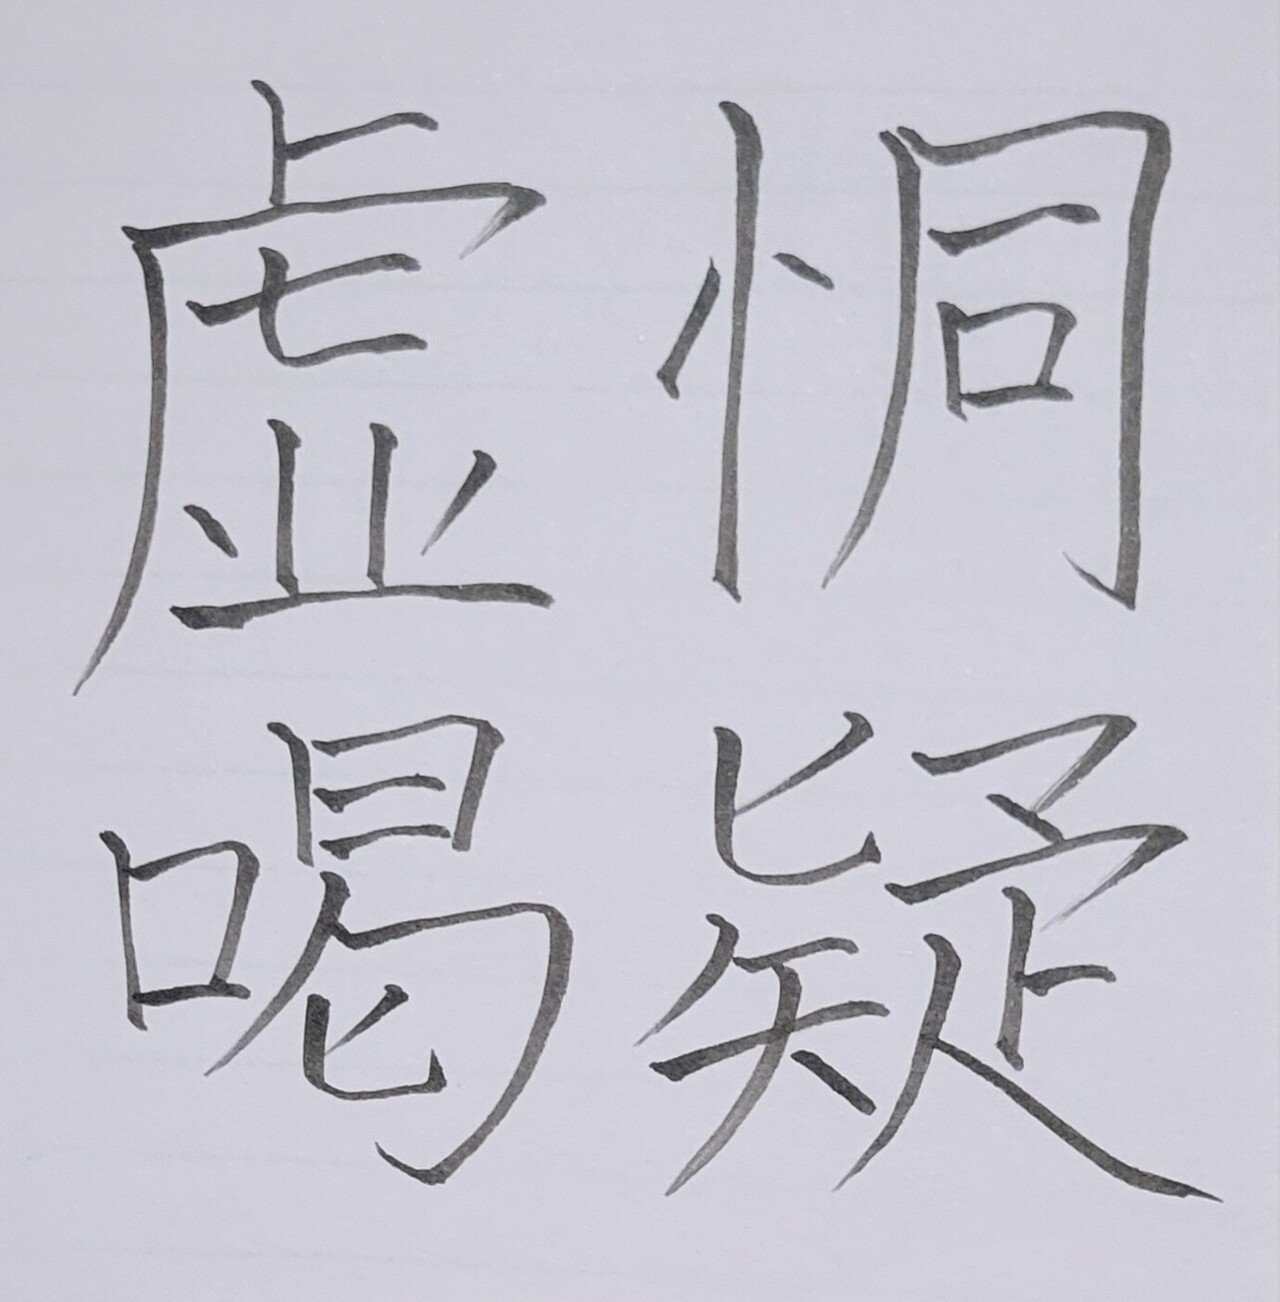 恫疑
虚喝